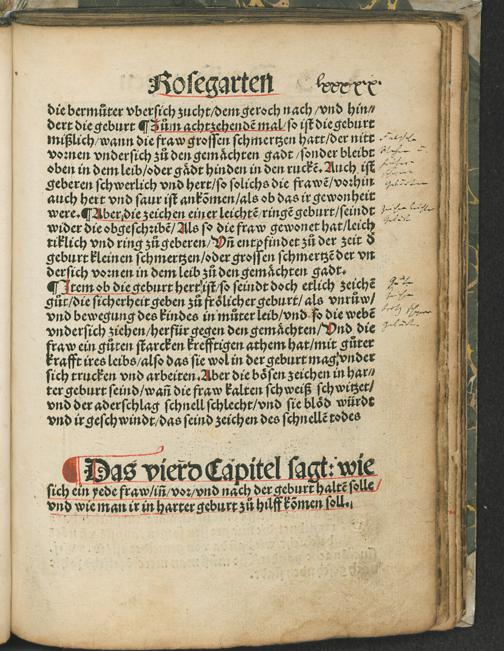 Rosegarten lxxxxx.
die bermůter vbersich zucht/dem geroch nach/vnd hin⸗
dert die geburt ¶Zům achtzehendẽ mal/so ist die geburt
mißlich/wann die fraw grossen schmertzen hatt/der nitt
vornen vndersich zů den gemächten gadt/sonder bleibt
oben in dem leib/oder gädt hinden in den ruckẽ. Auch ist
geberen schwerlich vnd hert/so solichs die frawẽ/vorhin
auch hert vnd saur ist ankõmen/als ob das ir gewonheit
were. ¶Aber die zeichen einer leichtẽ ringẽ geburt/seindt
wider die obgeschribẽ/Als so die fraw gewonet hat/leich
tiklich vnd ring zů geberen/Vñ entpfindet zů der zeit d̃
geburt kleinen schmertzen/oder grossen schmertzẽ der vn
dersich vornen in dem leib zů den gemächten gadt.
¶Item ob die geburt hert ist/so seindt doch etlich zeichẽ
gůt/die sicherheit geben zů frölicher geburt/als vnrůw/
vnd bewegung des kindes in můter leib/vnd so die webẽ
vndersich ziehen/herfür gegen den gemächten/Vnd die
fraw ein gůten starcken krefftigen athem hat/mit gůter
krafft ires leibs/also das sie wol in der geburt mag vnder
sich trucken vnd arbeiten. Aber die bösen zeichen in har⸗
ter geburt seind/wañ die fraw kalten schweiß schwitzet/
vnd der aderschlag schnell schlecht/vnd sie blöd würdt
vnd ir geschwindt/das seind zeichen des schnellẽ todes
¶Das vierd Capitel sagt: wie
sich ein yede fraw/iñ/vor/vnd nach der geburt haltẽ solle/
vnd wie man ir in harter geburt zů hilff kõmen soll.